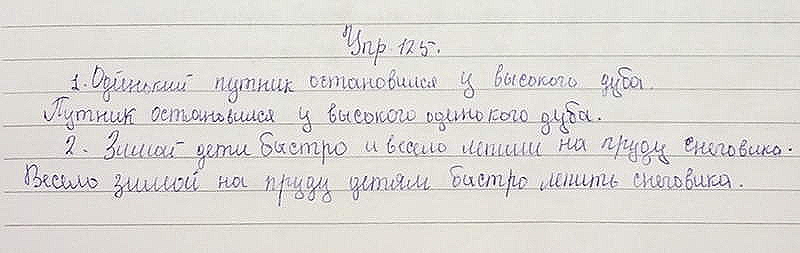 Упр 125.
1. Одинький путник остановился у высокого дуба.
Путник остановился у высокого одинокого дуба.
2. Зимой дети быстро и весело лепили на пруду снеговика.
Весело зимой на пруду детям быстро лепить снеговика.